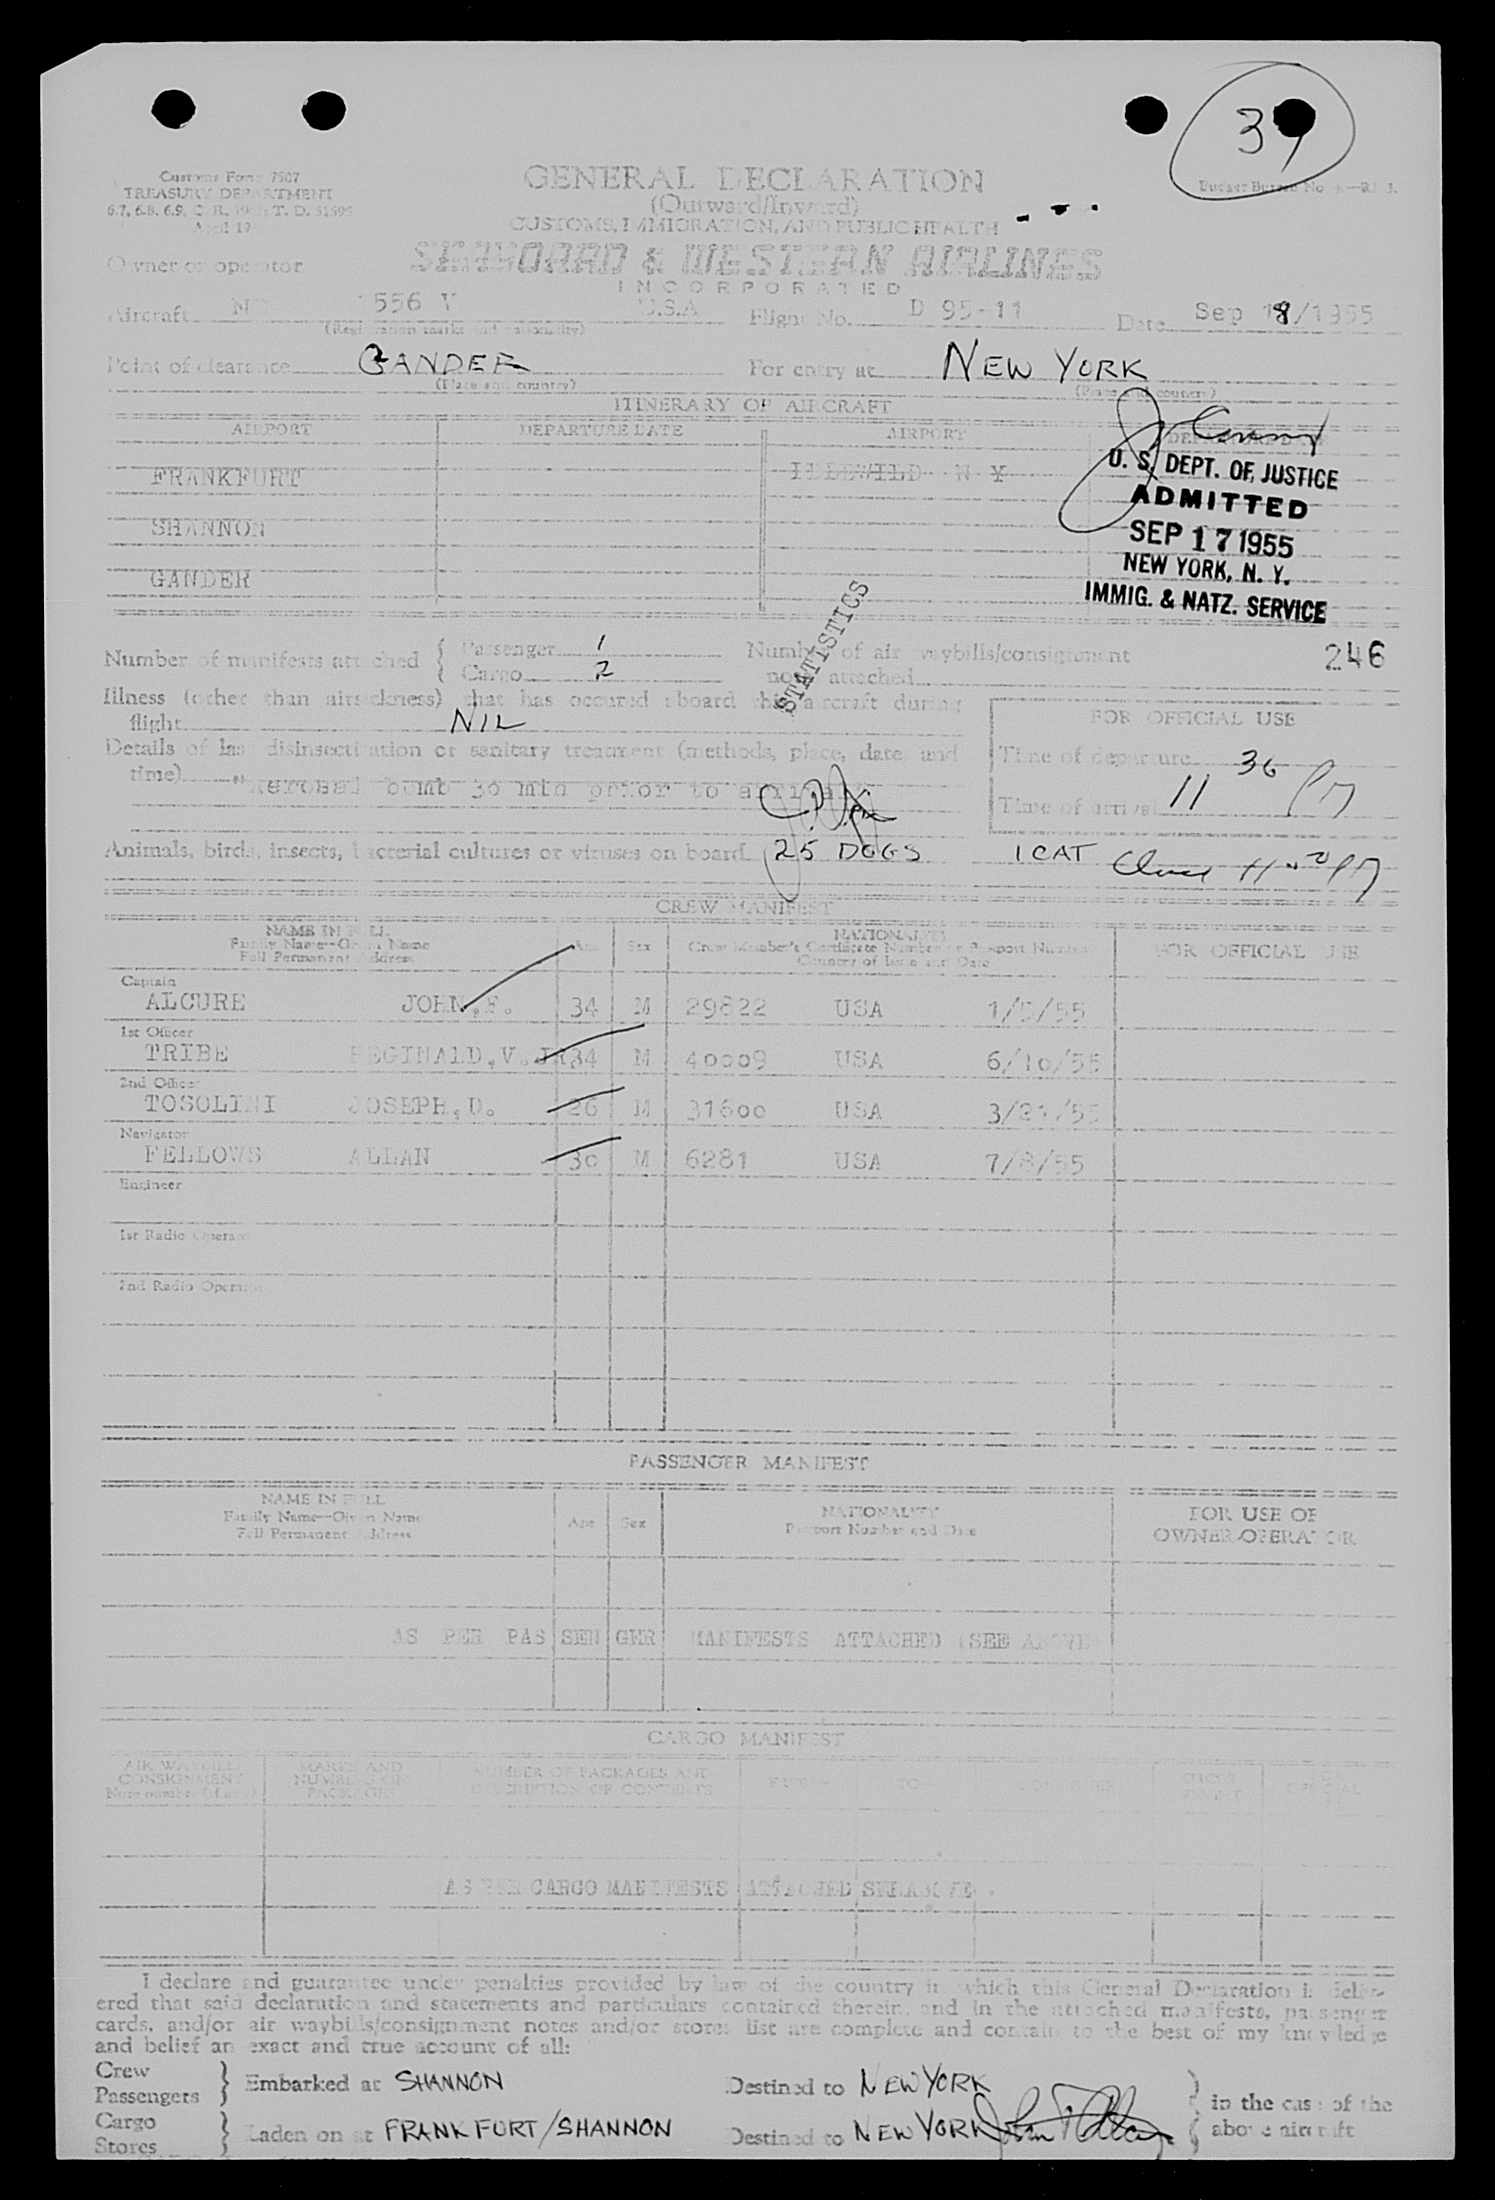 39
Customs Form 7507
TREASURY DEPARTMENT
GENERAL DECLARATION
(Outward/Inward)
CUSTOMS, IMMIGRATION, AND PUBLIC HEALTH
Owner or operator SEABOARD & WESTERN AIRLINES
INCORPORATED
Aircraft 1556 V U.S.A Flight No. D 95-11 Date Sep 18/1955
(Registration marks and nationality)
Point of clearance GANDER For entry at NEW YORK
(Place and country) (Place and country)
ITINERARY OF AIRCRAFT
AIRPORT DEPARTURE DATE AIRPORT
FRANKFURT IDLEWILD N Y
SHANNON
GANDER
U. S. DEPT. OF JUSTICE
ADMITTED
SEP 17 1955
NEW YORK, N. Y.
IMMIG. & NATZ. SERVICE
246
STATISTICS
Number of manifests attached { Passenger 1 Number of air waybills/consignment
Cargo 2 not attached
Illness (other than airsickness) that has occured aboard this aircraft during
flight NIL
Details of last disinsectization or sanitary treatment (methods, place, date, and
time) "Aerosal bomb 30 min prior to arrival
FOR OFFICIAL USE
Time of departure 36
Time of arrival 11 PM
Animals, birds, insects, bacterial cultures or viruses on board 25 DOGS 1 CAT
CREW MANIFEST
NAME IN FULL
Family Name--Given Name
Full Permanent Address
Age Sex
NATIONALITY
Crew Member's Certificate Number or Passport Number
Country of Issue and Date
FOR OFFICIAL USE
Captain
ALCURE JOHN.F. 34 M 29822 USA 1/5/55
1st Officer
TRIBE REGINALD.V.JR 34 M 40009 USA 6/10/55
2nd Officer
TOSOLINI JOSEPH.D. 26 M 31600 USA 3/21/55
Navigator
FELLOWS ALLAN 30 M 6281 USA 7/8/55
Engineer
1st Radio Operator
2nd Radio Operator
PASSENGER MANIFEST
NAME IN FULL
Family Name--Given Name
Full Permanent Address
Age Sex
NATIONALITY
Passport Number and Date
FOR USE OF
OWNER-OPERATOR
AS PER PAS SEN GER MANIFESTS ATTACHED (SEE ABOVE
CARGO MANIFEST
AIR WAYBILL
CONSIGNMENT
MARKS AND
NUMBERS ON
PACKAGES
NUMBER OF PACKAGES AND
DESCRIPTION OF CONTENTS
TO
AS PER CARGO MANIFESTS ATTACHED
I declare and guarantee under penalties provided by law of the country in which this General Declaration is deliv-
ered that said declaration and statements and particulars contained therein, and in the attached manifests, passenger
cards, and/or air waybills/consignment notes and/or stores list are complete and contain to the best of my knowledge
and belief an exact and true account of all:
Crew
Passengers } Embarked at SHANNON Destined to NEW YORK
Cargo
Stores } Laden on at FRANKFURT/SHANNON Destined to NEW YORK
in the case of the
above aircraft